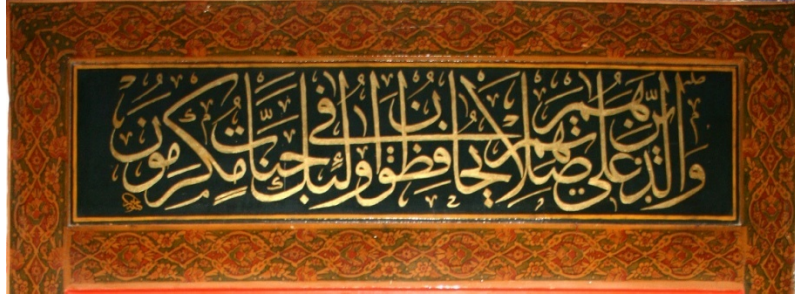 وَالَّذِينَ هُمْ عَلَى صَلَاتِهِمْ يُحَافِظُونَ أُولَئِكَ فِي جَنَّاتٍ مُكْرَمُونَ